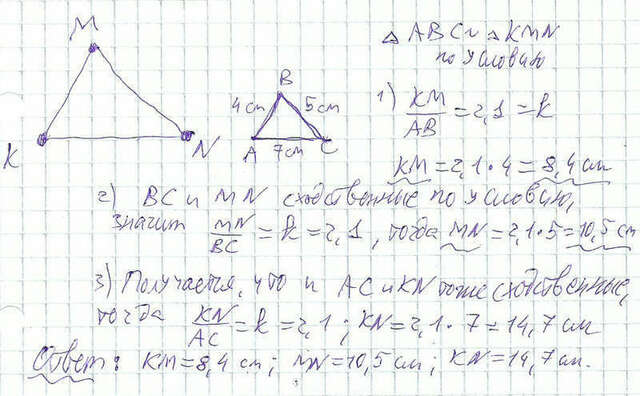 M
K
N
B
4 см 5 см
A 7 см C
△ ABC ~ △ KMN
по условию
1) KM/AB = 2,1 = k
KM = 2,1 · 4 = 8,4 см
2) BC и MN сходственные по условию,
значит MN/BC = k = 2,1, тогда MN = 2,1 · 5 = 10,5 см
3) Получается, что и AC и KN тоже сходственные,
тогда KN/AC = k = 2,1; KN = 2,1 · 7 = 14,7 см
Ответ: KM = 8,4 см; MN = 10,5 см; KN = 14,7 см.